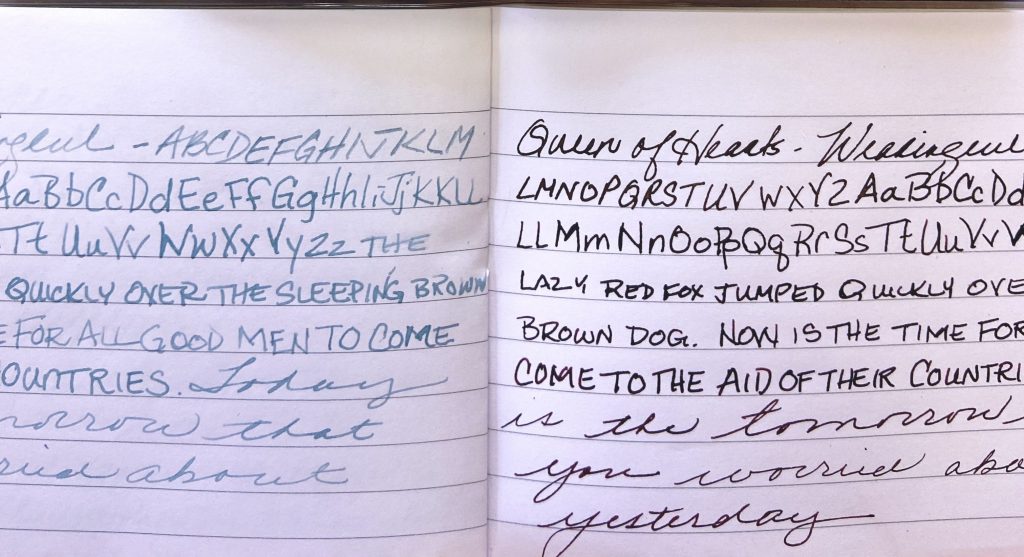 - ABCDEFGHIJKLM
AaBbCcDdEeFfGgHhIiJjKKLL
TtUuVvWwXxYyZz THE
QUICKLY OVER THE SLEEPING BROWN
E FOR ALL GOOD MEN TO COME
OUNTRIES. Today
morrow that
ried about
Queen of Hearts -
LMNOPQRSTUVWXYZ AaBbCcDd
LLMmNnOoPpQqRrSsTtUuVvW
LAZY RED FOX JUMPED QUICKLY OVE
BROWN DOG. NOW IS THE TIME FOR
COME TO THE AID OF THEIR COUNTRI
is the tomorrow
you worried abo
yesterday